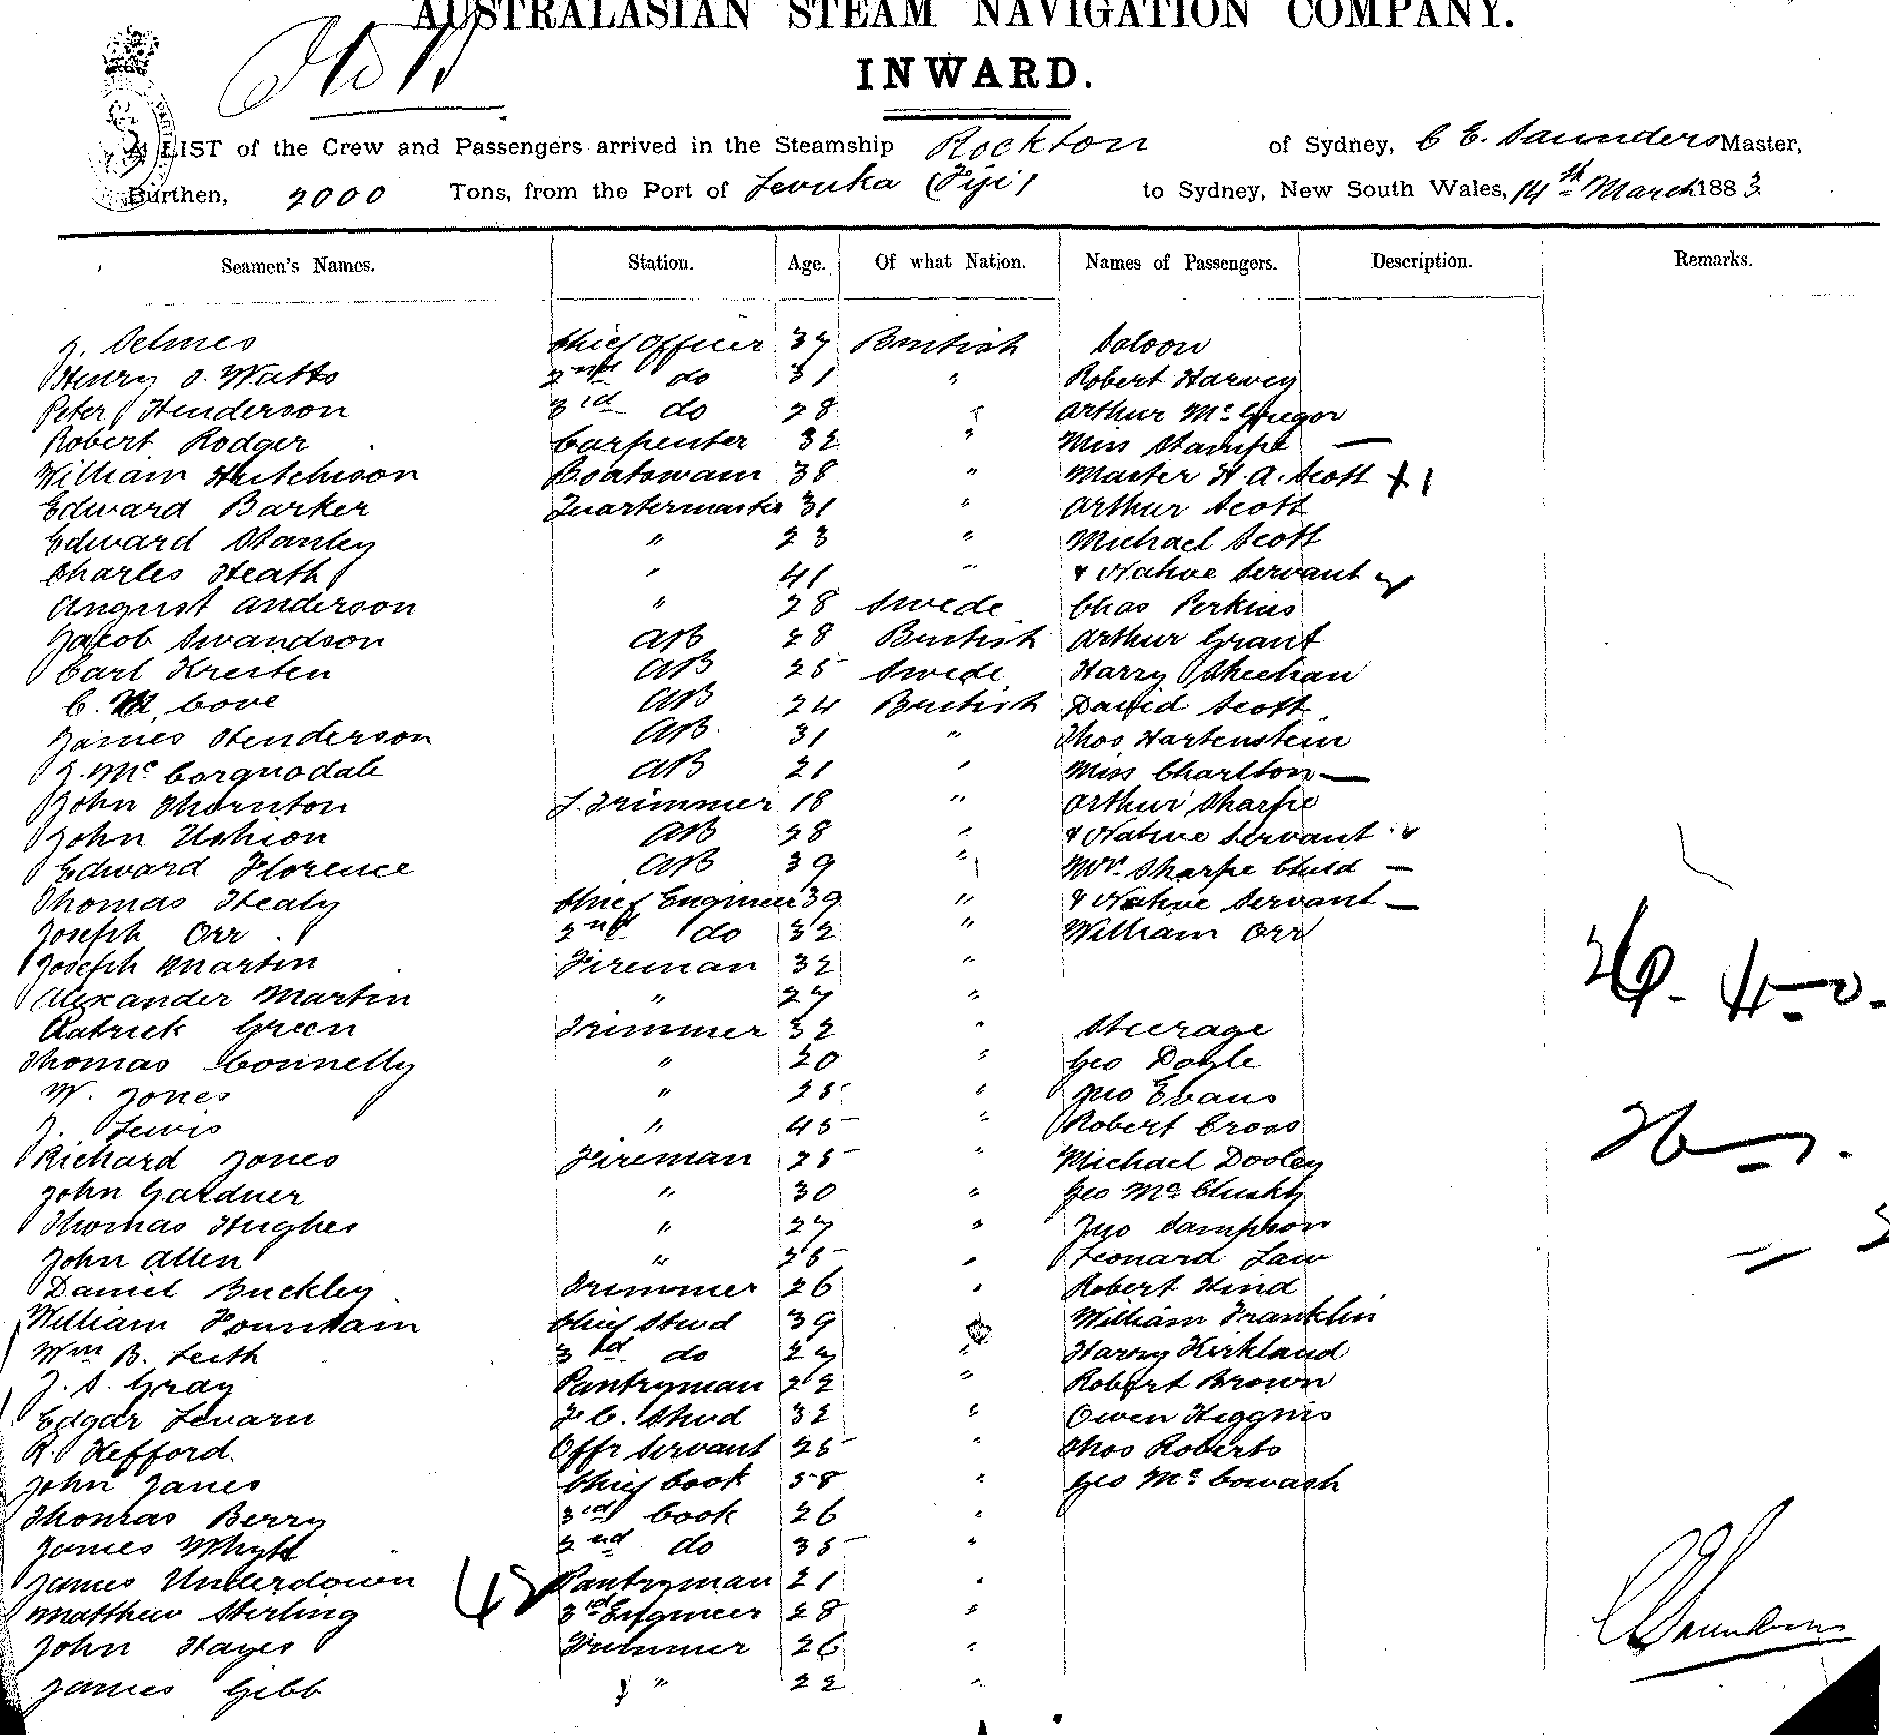 AUSTRALASIAN STEAM NAVIGATION COMPANY.
INWARD.
A LIST of the Crew and Passengers arrived in the Steamship Rockton of Sydney, C E. Saunders Master,
Burthen, 2000 Tons, from the Port of Levuka (Fiji) to Sydney, New South Wales, 14th March 1883
Seamen's Names. Station. Age. Of what Nation. Names of Passengers. Description. Remarks.
J. Selmes Chief Officer 37 British Saloon
Henry O. Watts 2nd do 31 " Robert Harvey
Peter Henderson 3rd do 28 " Arthur McGregor
Robert Rodger Carpenter 32 " Miss Stampe —
William Hutchison Boatswain 38 " Master H. A. Scott + 1
Edward Barker Quartermaster 31 " Arthur Scott
Edward Stanley " 23 " Michael Scott
Charles Heath " 41 " & Native Servant
August Anderson " 28 Swede Chas Perkins
Jacob Swandson AB 28 British Arthur Grant
Carl Kresten AB 25 Swede Harry Sheehan
C. M. Cove AB 24 British David Scott
James Henderson AB 31 " Thos Hartenstein
J. McCorquodale AB 21 " Miss Charlton —
John Thornton L. Trimmer 18 " Arthur Sharpe
John AB 28 " & Native Servant
Edward Florence AB 39 " Mrs Sharpe Child —
Thomas Healy Chief Engineer 39 " & Native Servant —
Joseph Orr 2nd do 32 " William Orr
Joseph Martin Fireman 32 "
Alexander Martin " 27 "
Patrick Green Trimmer 32 " Steerage
Thomas Connelly " 20 " Geo Doyle
W. Jones " 25 " Jno Evans
J. Lewis " 45 " Robert Cross
Richard Jones Fireman 25 " Michael Dooley
John Gardner " 30 " Geo McClusky
Thomas Hughes " 27 " Jno Sampson
John Allen " 25 " Leonard Law
Daniel Buckley Trimmer 26 " Robert Hind
William Fountain Chief Stwd 39 " William Franklin
Wm B. Leith 3rd do 27 " Harry Kirkland
J. S. Gray Pantryman 22 " Robert Brown
Edgar Levarn F. C. Stwd 32 " Owen Higgins
R. Hefford Offr Servant 25 " Thos Roberts
John Janes Chief Cook 58 " Geo McCowash
Thomas Berry 3rd Cook 26 "
James Whyte 2nd do 35 "
James Underdown Pantryman 21 "
Matthew Stirling 3rd Engineer 28 "
John Hayes Trimmer 26 "
James Gibb " 22 "
42
C Saunders